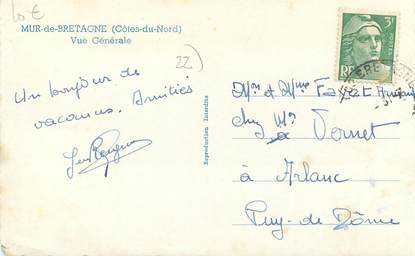 10 €
MUR-de-BRETAGNE (Côtes-du-Nord)
Vue Générale
22)
Un bonjour de
vacances. Amitiés
Reproduction Interdite
3F
RF
Mon et Mme Fayet
chez Mr Vernet
à Arlanc
Puy-de Dôme